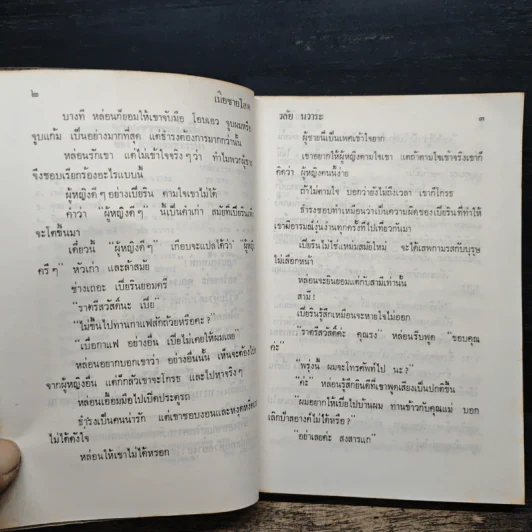 ๒
เมียชายโสด
บางที หล่อนก็ยอมให้เขาจับมือ โอบเอว จูบผมหรือ
จูบแก้ม เป็นอย่างมากที่สุด แต่ธำรงต้องการมากกว่านั้น
หล่อนรักเขา แต่ไม่เข้าใจจริงๆว่า ทำไมพวกผู้ชาย
จึงชอบเรียกร้องอะไรแบบนี้
ผู้หญิงดีๆอย่างเบียริน ตามใจเขาไม่ได้
คำว่า “ผู้หญิงดีๆ” นี้เป็นคำเก่า สมัยที่เบียริน
จะโตขึ้นมา
เดี๋ยวนี้ “ผู้หญิงดีๆ” เกือบจะแปลได้ว่า “ผู้หญิง
ครึๆ” หัวเก่า และล้าสมัย
ช่างเถอะ เบียรินยอมครึ
“ราตรีสวัสดิ์นะ เบีย”
“ไม่ขึ้นไปทานกาแฟสักถ้วยหรือคะ?”
“เบื่อกาแฟ อย่างอื่น เบียไม่เคยให้ผมเลย”
หล่อนอยากบอกเขาว่า อย่างอื่นนั้น เห็นจะต้อง
จากผู้หญิงอื่น แต่ก็กลัวเขาจะโกรธ และไปหาจริงๆ
หล่อนเอื้อมมือไปเปิดประตูรถ
ธำรงเป็นคนน่ารัก แต่เขาชอบงอนและหงุดหงิด
ไม่ได้ดังใจ
หล่อนให้เขาไม่ได้หรอก
วลัย นวาระ
๓
ผู้ชายนี่เป็นเพศเข้าใจยาก!
เขาอยากให้ผู้หญิงตามใจเขา แต่ถ้าตามใจเข้าจริงเขาก็
คิดว่า ผู้หญิงคนนี้ง่าย
ถ้าไม่ตามใจ บอกว่ายังไม่ถึงเวลา เขาก็โกรธ
ธำรงชอบทำเหมือนว่าเป็นความผิดของเบียรินที่ทำให้
เขามีอารมณ์วุ่นง่านทุกครั้งที่ไปเที่ยวกันมา
เบียรินไม่ใช่แหม่มสมัยใหม่ จะได้เสพกามรสกับบุรุษ
ไม่เลือกหน้า
หล่อนจะยินยอมแต่กับสามีเท่านั้น
สามี!
เบียรินรู้สึกเหมือนจะหายใจไม่ออก
“ราตรีสวัสดิ์ค่ะ คุณรง” หล่อนรีบพูด “ขอบคุณ
ค่ะ”
“พรุ่งนี้ ผมจะโทรศัพท์ไป นะ?”
“ค่ะ” หล่อนรู้สึกยินดีที่เขาพูดเสียงเป็นปกติขึ้น
“ผมอยากให้เบียไปบ้านผม ทานข้าวกับคุณแม่ บอก
เลิกป้าสอางค์ไม่ได้หรือ?”
“อย่าเลยค่ะ สงสารแก”